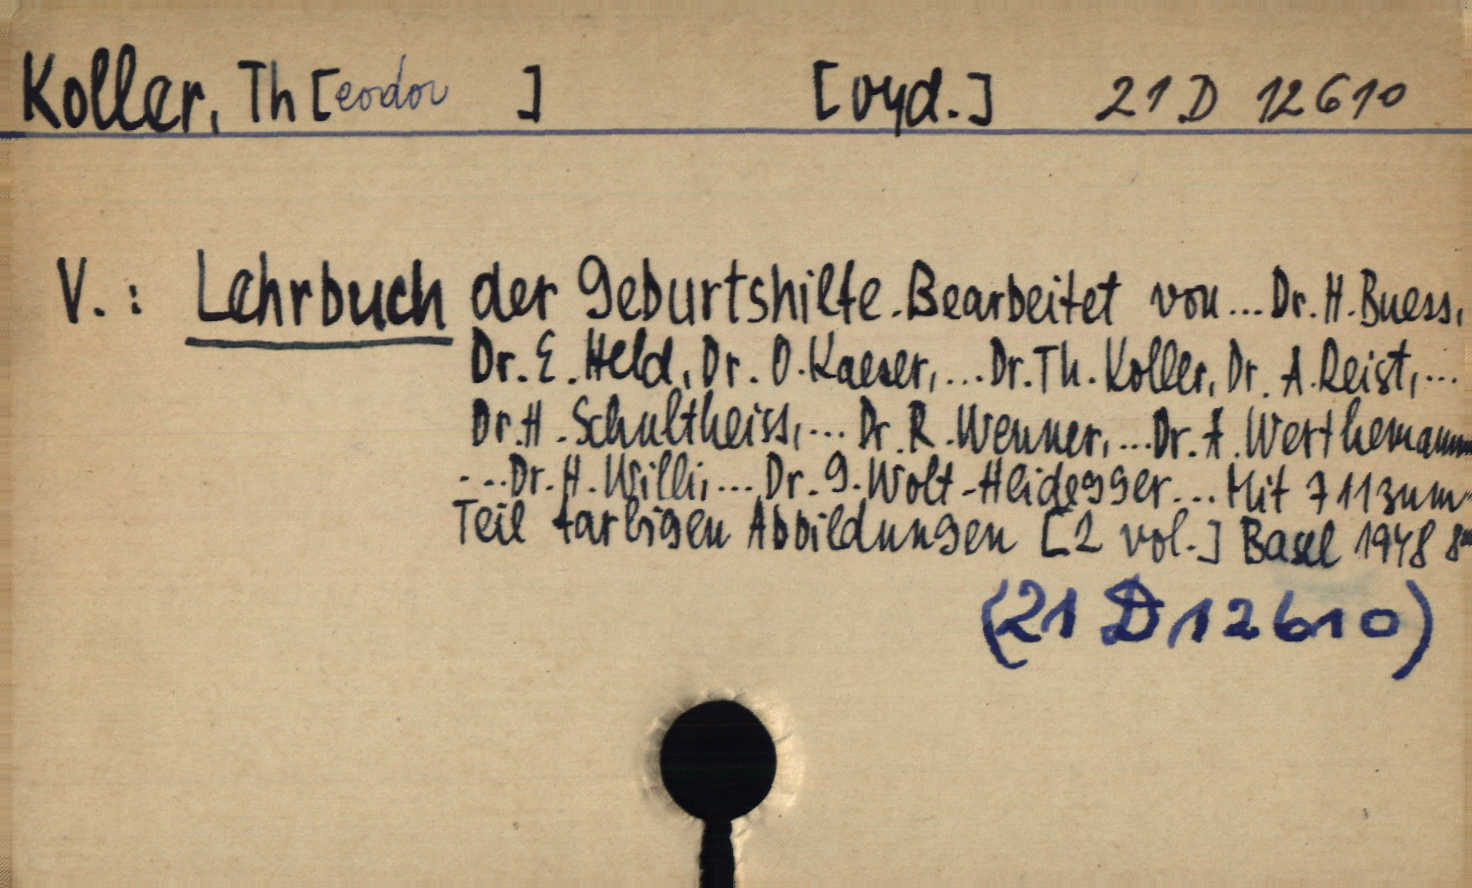 Koller, Th[eodor ] [vyd.] 21 D 12610
V.: Lehrbuch der Geburtshilfe. Bearbeitet von ... Dr. H. Buess,
Dr. E. Held, Dr. O. Kaeser, ... Dr. Th. Koller, Dr. A. Reist, ...
Dr. H. Schultheiss, ... Dr. R. Wenner, ... Dr. A. Werthemann
... Dr. H. Willi, ... Dr. G. Wolf-Heidegger ... Mit 711 zum
Teil farbigen Abbildungen [2 vol.] Basel 1948 8°
(21 D 12610)